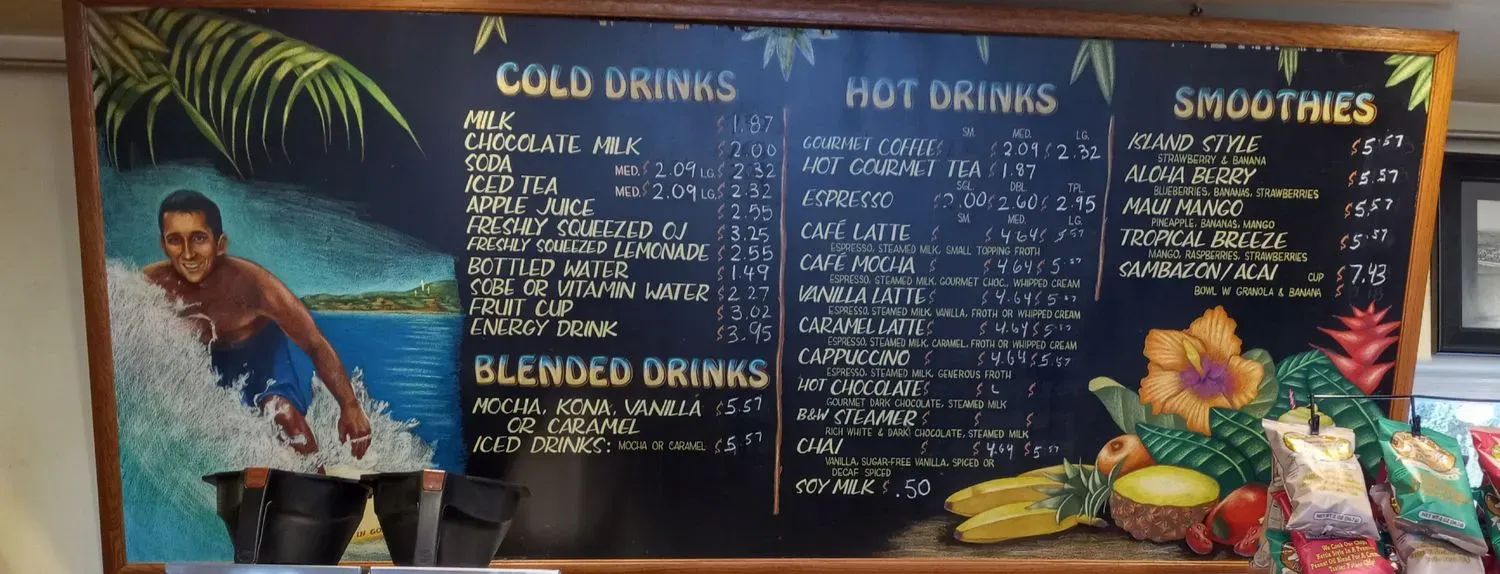 COLD DRINKS
MILK $1.87
CHOCOLATE MILK $2.00
SODA MED. $2.09 LG. $2.32
ICED TEA MED. $2.09 LG. $2.32
APPLE JUICE $2.55
FRESHLY SQUEEZED OJ $3.25
FRESHLY SQUEEZED LEMONADE $2.55
BOTTLED WATER $1.49
SOBE OR VITAMIN WATER $2.27
FRUIT CUP $3.02
ENERGY DRINK $3.95
BLENDED DRINKS
MOCHA, KONA, VANILLA $5.57
OR CARAMEL
ICED DRINKS: MOCHA OR CARAMEL $5.57
HOT DRINKS
SM. MED. LG.
GOURMET COFFEE $ $2.09 $2.32
HOT GOURMET TEA $1.87
SGL. DBL. TPL.
ESPRESSO $2.60 $2.95
SM. MED. LG.
CAFÉ LATTE $4.64 $5.57
ESPRESSO, STEAMED MILK, SMALL TOPPING FROTH
CAFÉ MOCHA $ $4.64 $5.57
ESPRESSO, STEAMED MILK, GOURMET CHOC., WHIPPED CREAM
VANILLA LATTE $ $4.64 $5.57
ESPRESSO, STEAMED MILK, VANILLA, FROTH OR WHIPPED CREAM
CARAMEL LATTE $ $4.64 $5.57
ESPRESSO, STEAMED MILK, CARAMEL, FROTH OR WHIPPED CREAM
CAPPUCCINO $ $4.64 $5.57
ESPRESSO, STEAMED MILK, GENEROUS FROTH
HOT CHOCOLATE $ $ $
GOURMET DARK CHOCOLATE, STEAMED MILK
B&W STEAMER $ $ $
RICH WHITE & DARK CHOCOLATE, STEAMED MILK
CHAI $ $4.64 $5.57
VANILLA, SUGAR-FREE VANILLA, SPICED OR
DECAF SPICED
SOY MILK $.50
SMOOTHIES
ISLAND STYLE $5.57
STRAWBERRY & BANANA
ALOHA BERRY $5.57
BLUEBERRIES, BANANAS, STRAWBERRIES
MAUI MANGO $5.57
PINEAPPLE, BANANAS, MANGO
TROPICAL BREEZE $5.57
MANGO, RASPBERRIES, STRAWBERRIES
SAMBAZON/ACAI CUP $7.43
BOWL W/ GRANOLA & BANANA
We Cook Our Chips